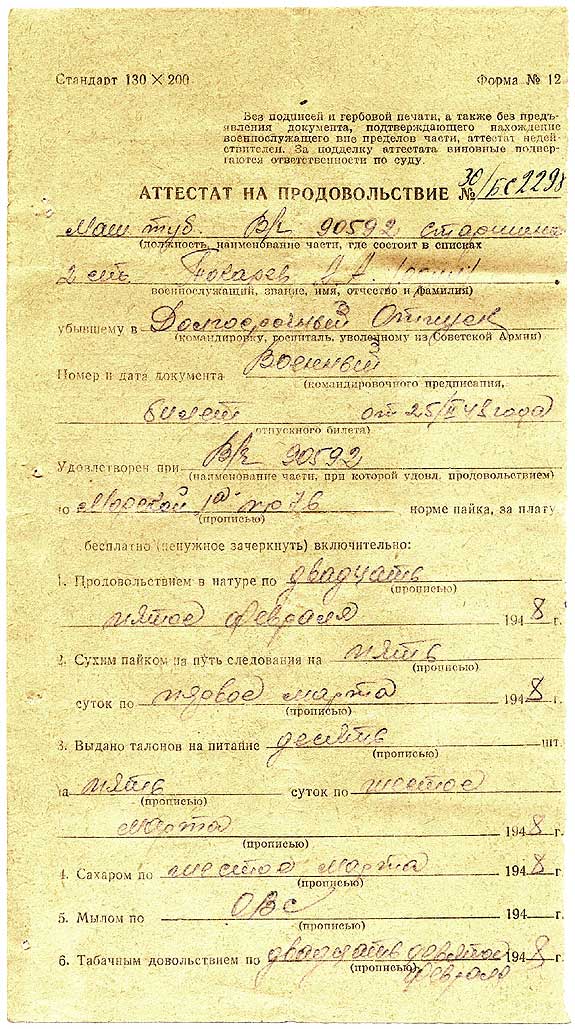 Стандарт 130 × 200 Форма № 12
Без подписей и гербовой печати, а также без предъ-
явления документа, подтверждающего нахождение
военнослужащего вне пределов части, аттестат недей-
ствителен. За подделку аттестата виновные подвер-
гаются ответственности по суду.
АТТЕСТАТ НА ПРОДОВОЛЬСТВИЕ № 30/БС2298
Маш туб. В/ч 90592 старшина
(должность, наименование части, где состоит в списках
2 ст. Токарев
военнослужащий, звание, имя, отчество и фамилия)
убывшему в Долгосрочный Отпуск
(командировку, госпиталь, уволенному из Советской Армии)
Номер и дата документа Военный
(командировочного предписания,
билет от 25/II 48 года
отпускного билета)
Удовлетворен при В/ч 90592
(наименование части, при которой удовл. продовольствием)
по Морской норме пайка, за плату
(прописью)
бесплатно (ненужное зачеркнуть) включительно:
1. Продовольствием в натуре по двадцать
(прописью)
пятое февраля 1948 г.
2. Сухим пайком на путь следования на пять
(прописью)
суток по первое марта 1948 г.
(прописью)
3. Выдано талонов на питание десять шт.
(прописью)
на пять суток по шестое
(прописью)
марта 1948 г.
(прописью)
4. Сахаром по шестое марта 1948 г.
(прописью)
5. Мылом по ОВС 194 г.
(прописью)
6. Табачным довольствием по двадцать девятое 1948 г.
(прописью) февраля